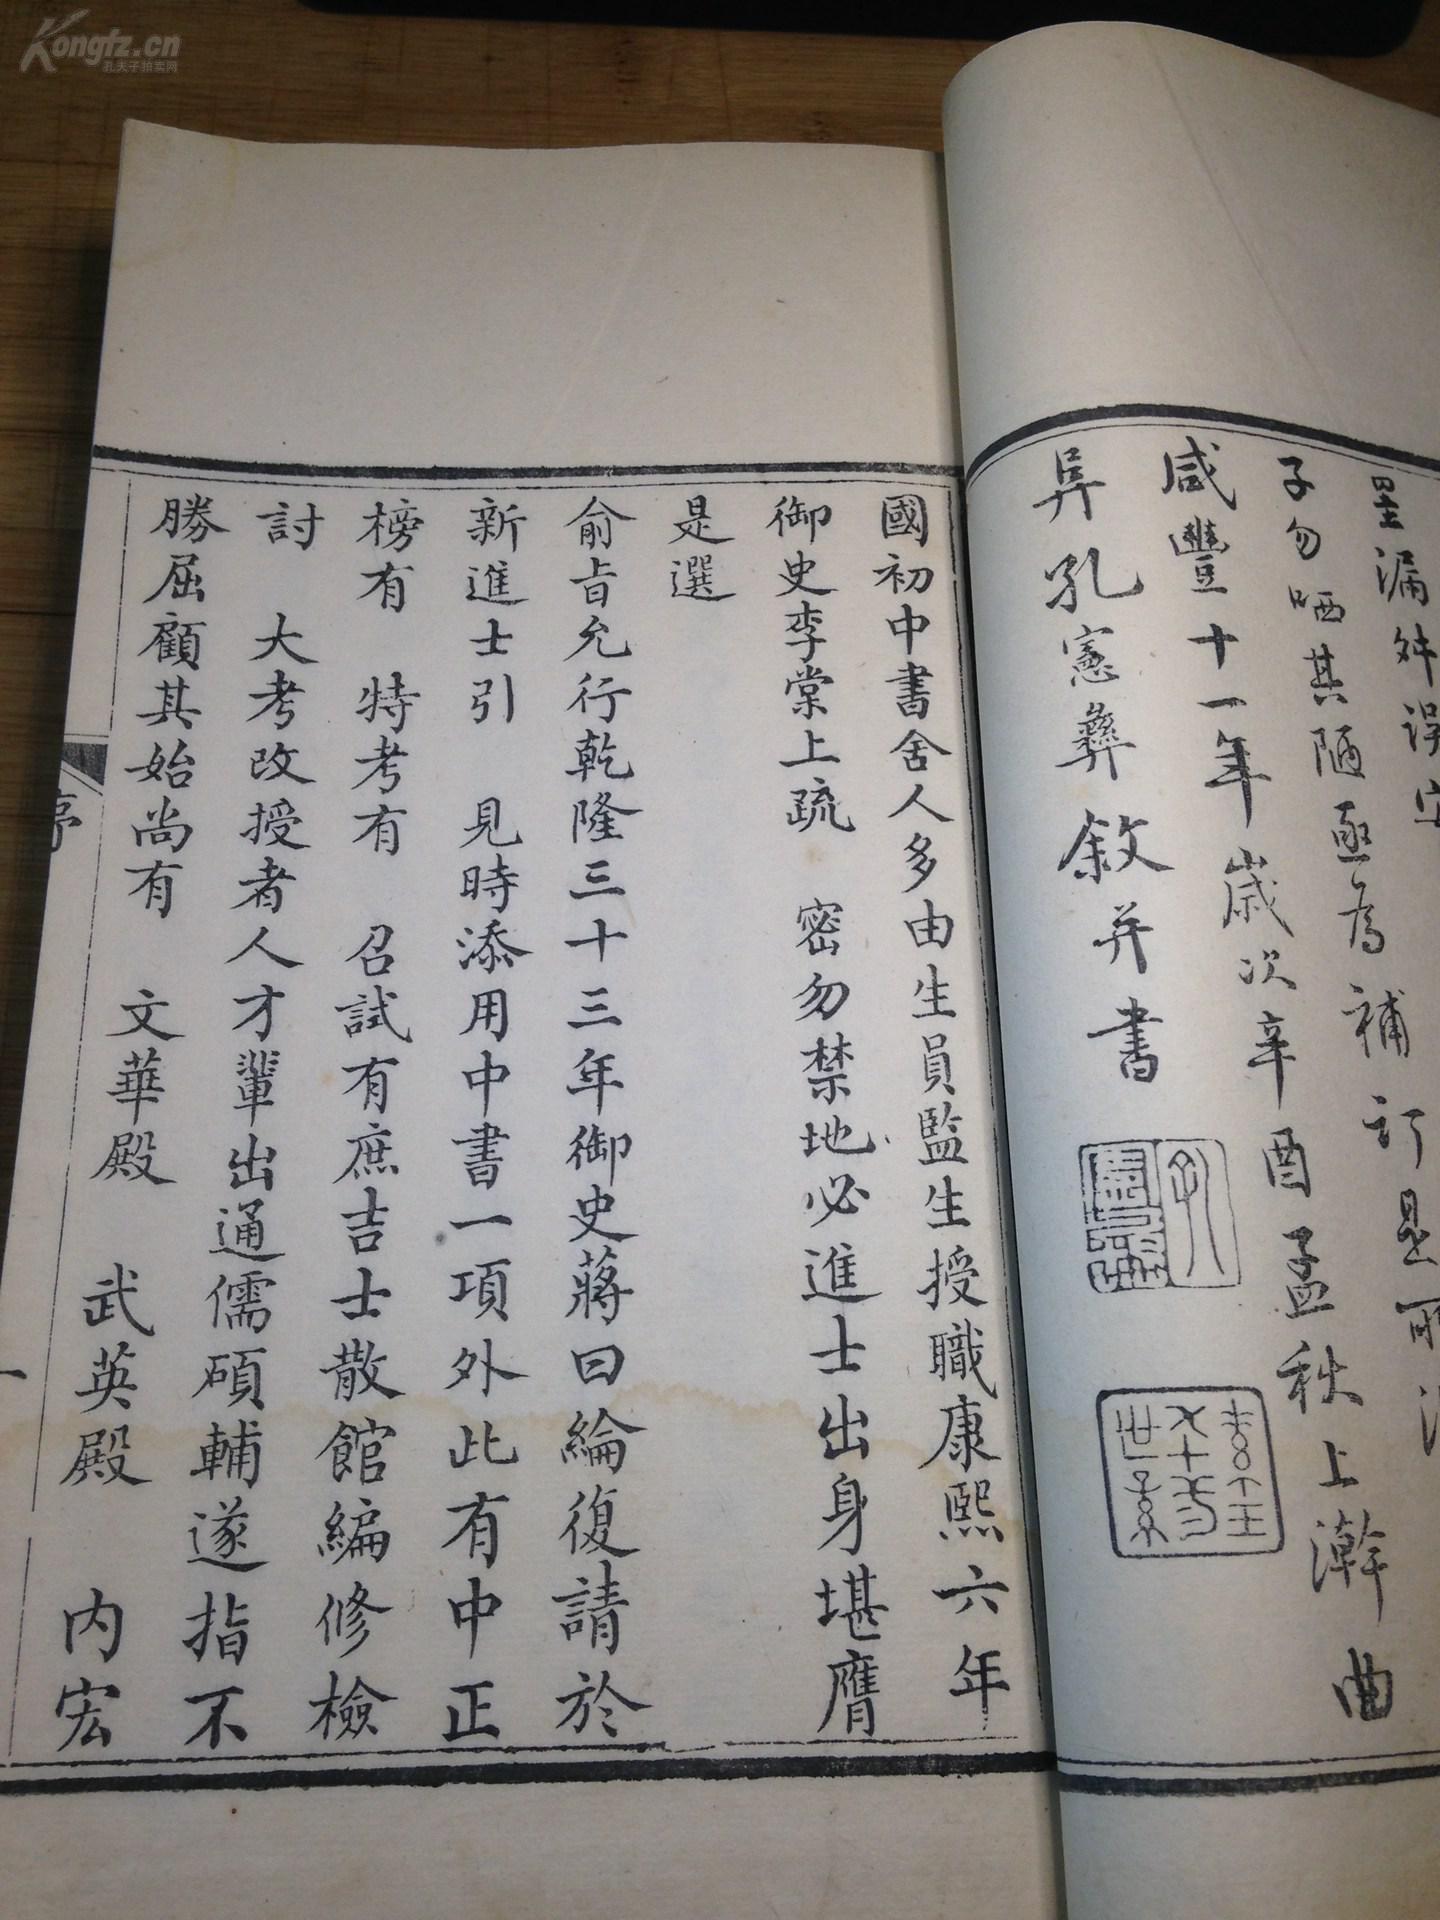 Kongfz.cn
孔夫子拍卖网
子勿哂其陋亟為補訂是所
咸豐十一年歲次辛酉孟秋上澣曲
阜孔憲彝敘并書
國初中書舍人多由生員監生授職康熙六年
御史李棠上疏 密勿禁地必進士出身堪膺
是選
俞旨允行乾隆三十三年御史蔣曰綸復請於
新進士引 見時添用中書一項外此有中正
榜有 特考有 召試有庶吉士散館編修檢
討 大考改授者人才輩出通儒碩輔遂指不
勝屈顧其始尚有 文華殿 武英殿 內宏
序
一